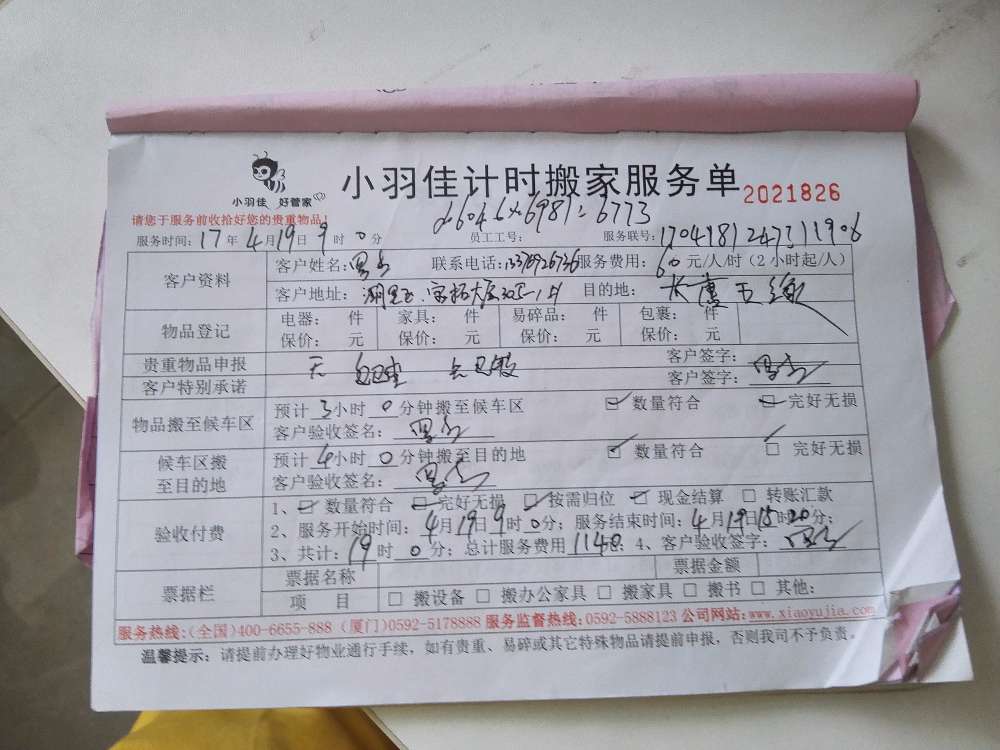 小羽佳 好管家
小羽佳计时搬家服务单 2021826
请您于服务前收拾好您的贵重物品!
服务时间: 17 年 4 月 19 日 9 时 0 分 员工工号: 服务联号: 1704181247311906
客户资料 客户姓名: 联系电话: 服务费用: 60 元/人/时 (2小时起/人)
客户地址: 目的地:
物品登记 电器: 件 家具: 件 易碎品: 件 包裹: 件
保价: 元 保价: 元 保价: 元 保价: 元
贵重物品申报 无 客户签字:
客户特别承诺 客户签字:
物品搬至候车区 预计 3 小时 0 分钟搬至候车区 ☑ 数量符合 ☑ 完好无损
客户验收签名:
候车区搬至目的地 预计 4 小时 0 分钟搬至目的地 ☑ 数量符合 ☐ 完好无损
客户验收签名:
验收付费 1、☑ 数量符合 ☑ 完好无损 ☑ 按需归位 ☑ 现金结算 ☐ 转账汇款
2、服务开始时间: 4 月 19 日 9 时 0 分; 服务结束时间: 4 月 19 日 15 时 20 分;
3、共计: 19 时 0 分; 总计服务费用 1140; 4、客户验收签字:
票据栏 票据名称 票据金额
项 目 ☐ 搬设备 ☐ 搬办公家具 ☐ 搬家具 ☐ 搬书 ☐ 其他:
服务热线:(全国)400-6655-888 (厦门)0592-5178888 服务监督热线:0592-5888123 公司网站:www.xiaoyujia.com
温馨提示: 请提前办理好物业通行手续, 如有贵重、易碎或其它特殊物品请提前申报, 否则我司不予负责。